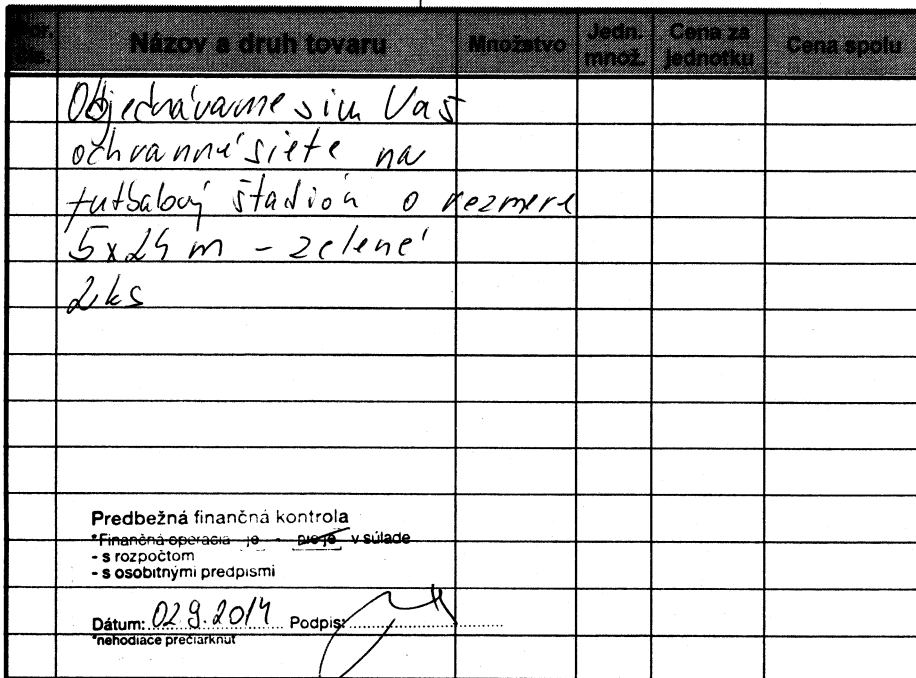 Por. čís. Názov a druh tovaru Množstvo Jedn. množ. Cena za jednotku Cena spolu
Objednávame si u Vás
ochranné siete na
futbalový štadión o rozmere
5x24 m - zelené
2 ks
Predbežná finančná kontrola
*Finančná operácia je - nie je v súlade
- s rozpočtom
- s osobitnými predpismi
Dátum: 02.9.2014 Podpis:
*nehodiace prečiarknuť